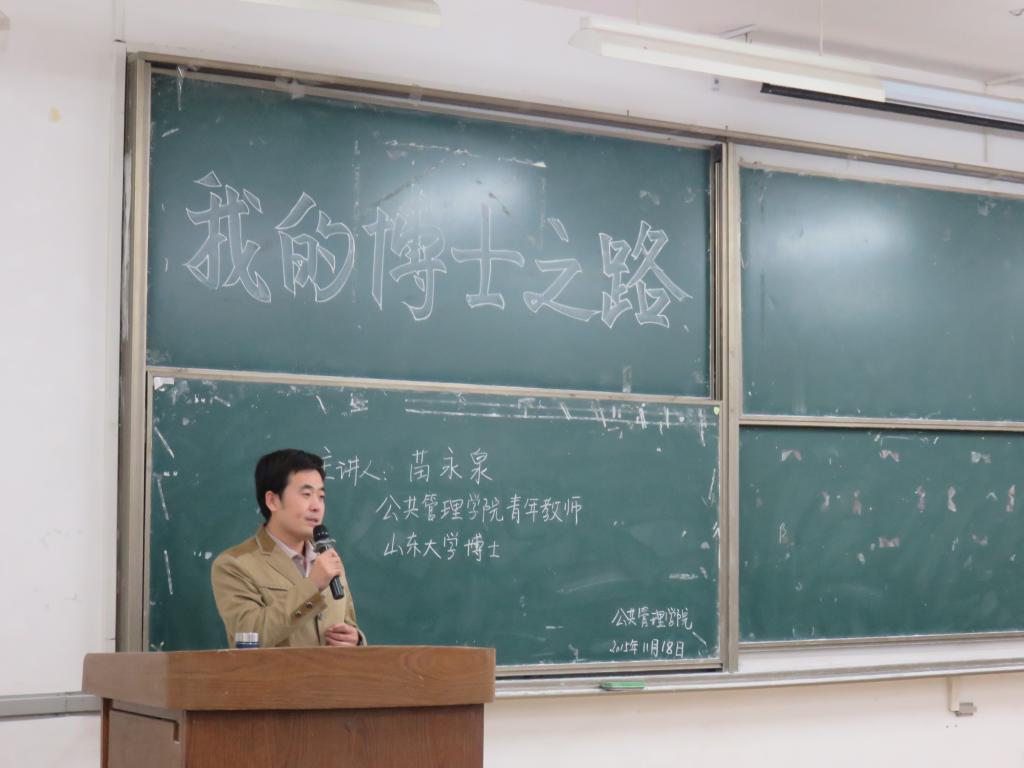 我的博士之路
主讲人：苗永泉
公共管理学院青年教师
山东大学博士
公共管理学院
2015年11月18日